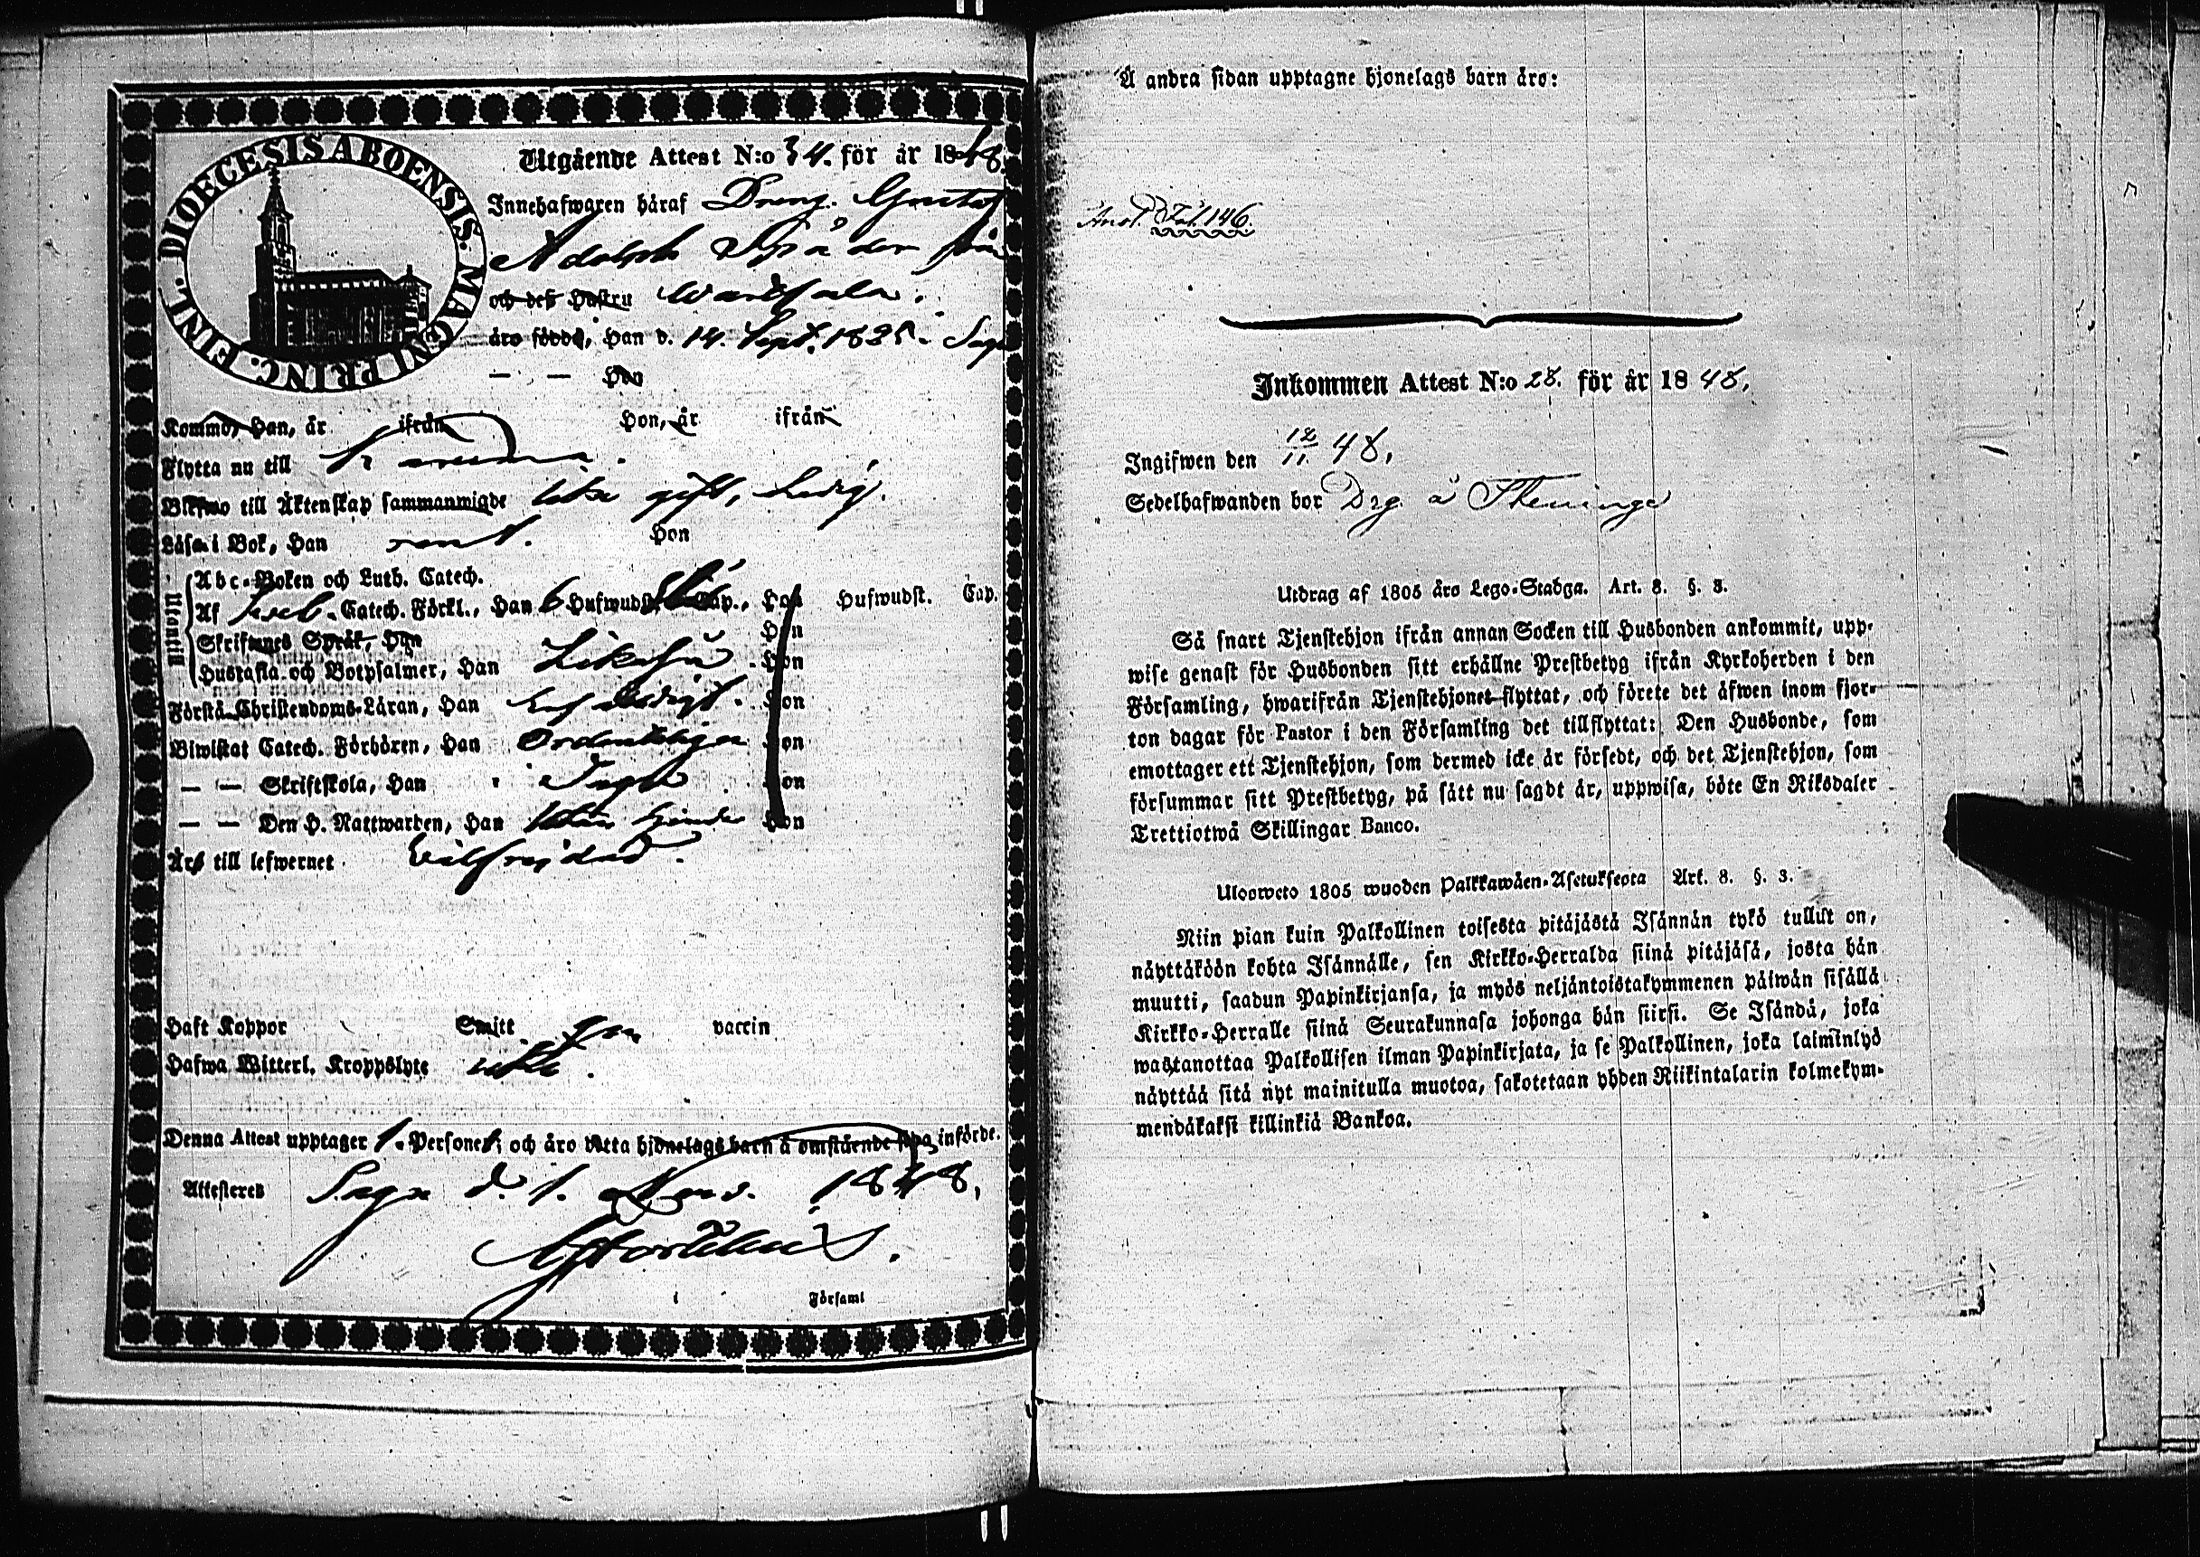 DIOECESIS ABOENSIS. MAGNI PRINC. FINL.
Utgående Attest N:o 34. för år 1848.
Innehafwaren håraf Dreng. Gustaf
Adolph Spåder från
och deß Hustru Wardsala.
åro födde, Han d. 14. Sept. 1825 i Sagu
— — Hon
Kommo, Han, år ifrån Hon, år ifrån
Flytta nu till Karuna.
Blefwo till Äktenskap sammanwigde icke gift, Ledig.
Låsa i Bok, Han rent. Hon
Utantill
Abc-Boken och Luth. Catech.
Af Catech. Förkl., Han 6 Hufwudst. Cap., Hon Hufwudst. Cap.
Skriftenes Språk, Han Hon
Hustafla och Botpsalmer, Han Likaså Hon
Förstå Christendoms-Låran, Han Hon
Biwistat Catech. Förhören, Han Ordenteligen Hon
— — Skriftskola, Han Hon
— — Den H. Nattwarden, Han Hon
Åro till lefwernet Wälfrejdad.
Haft Koppor Smitt vaccin
Hafwa Witterl. Kroppslyte icke.
Denna Attest upptager 1. Personer; och åro detta hjonelags barn å omstående sida införde.
Attesteres Sagu d. 1. Nov. 1848.
i Församl
Å andra sidan upptagne hjonelags barn åro:
Anot. Fol. 146.
Inkommen Attest N:o 28. för år 1848.
Ingifwen den 12/11. 48.
Sedelhafwanden bor Drg. å Stheninge
Utdrag af 1805 års Lego-Stadga. Art. 8. §. 3.
Så snart Tjenstehjon ifrån annan Socken till Husbonden ankommit, upp-
wise genast för Husbonden sitt erhållne Prestbetyg ifrån Kyrkoherden i den
Församling, hwarifrån Tjenstehjonet flyttat, och förete det åfwen inom fjor-
ton dagar för Pastor i den Församling det tillflyttat: Den Husbonde, som
emottager ett Tjenstehjon, som dermed icke år försedt, och det Tjenstehjon, som
försummar sitt Prestbetyg, på sått nu sagdt år, uppwisa, böte En Riksdaler
Trettiotwå Skillingar Banco.
Ulosweto 1805 wuoden Palkkawåen-Asetuksesta Art. 8. §. 3.
Niin pian kuin Palkollinen toisesta pitåjåstå Isånnån tykö tullut on,
nåyttåköön kohta Isånnålle, sen Kirkko-Herralda siinå pitåjåså, josta hån
muutti, saadun Papinkirjansa, ja myös neljåntoistakymmenen påiwån sisållå
Kirkko-Herralle siinå Seurakunnasa johonga hån siirsi. Se Isåndå, joka
wastanottaa Palkollisen ilman Papinkirjata, ja se Palkollinen, joka laiminlyö
nåyttåå sitå nyt mainitulla muotoa, sakotetaan yhden Riikintalarin kolmekym-
mendåkaksi killinkiå Bankoa.